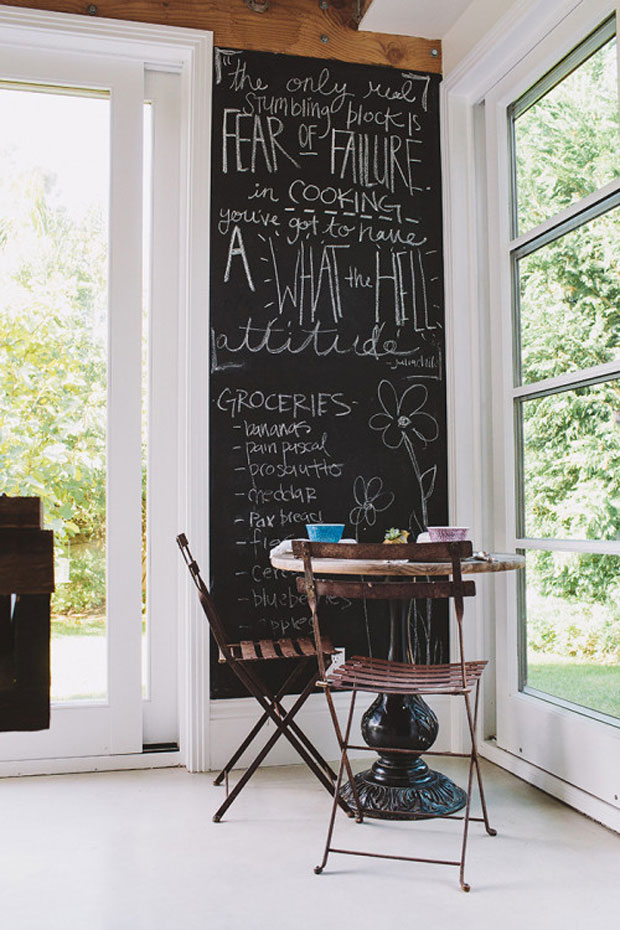 "the only real
stumbling block is
FEAR OF FAILURE.
in COOKING
you've got to have
A WHAT the HELL
attitude"
-julia child
-GROCERIES-
- bananas
- pain pascal
- prosciutto
- cheddar
- pax bread
- blueberries
- apples